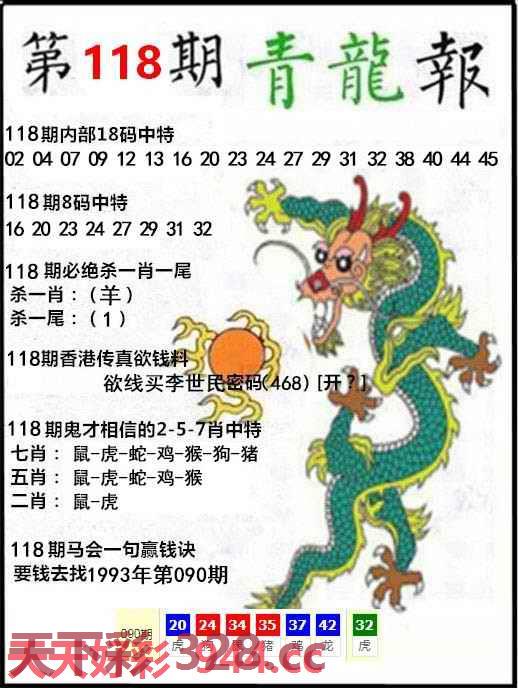 第118期青龍報
118期内部18码中特
02 04 07 09 12 13 16 20 23 24 27 29 31 32 38 40 44 45
118期8码中特
16 20 23 24 27 29 31 32
118期必绝杀一肖一尾
杀一肖：(羊)
杀一尾：(1)
118期香港传真欲钱料
欲线买李世民密码(468) [开？]
118期鬼才相信的2-5-7肖中特
七肖：鼠-虎-蛇-鸡-猴-狗-猪
五肖：鼠-虎-蛇-鸡-猴
二肖：鼠-虎
118期马会一句赢钱诀
要钱去找1993年第090期
090期
20 24 34 35 37 42 32
虎 猪 鸡 龙 虎
天天好彩